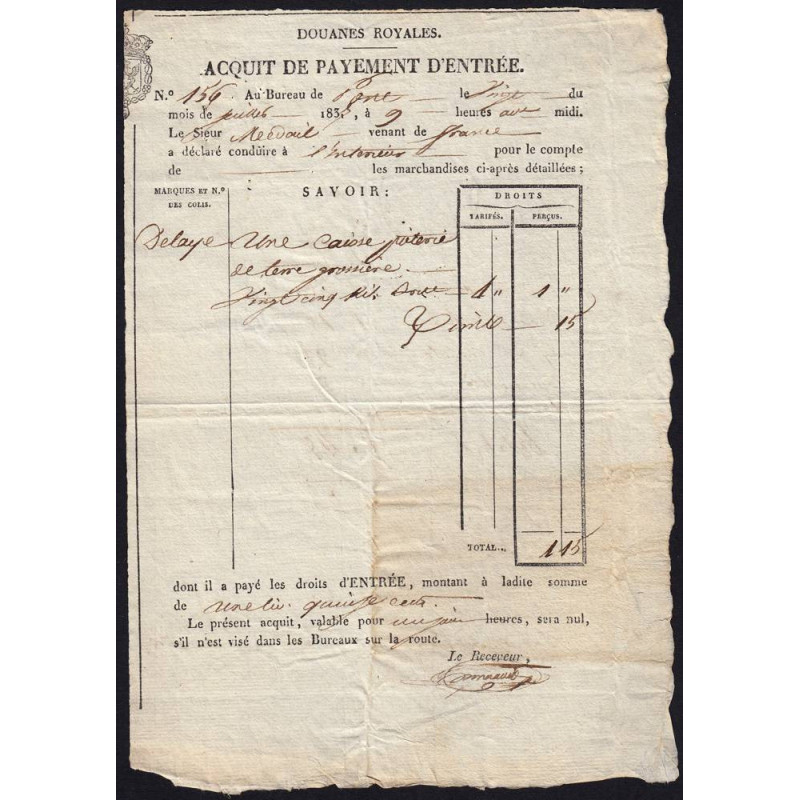 DOUANES ROYALES.
ACQUIT DE PAYEMENT D'ENTRÉE.
N.º 156 Au Bureau de Pont le Vingt du
mois de juillet 183 à 9 heures av midi.
Le Sieur Medail venant de france
a déclaré conduire à l'interieur pour le compte
de les marchandises ci-après détaillées ;
MARQUES ET N.º DES COLIS. SAVOIR : DROITS
TARIFÉS. PERÇUS.
Delaye Une caisse poterie
de terre grossière.
Vingt cinq Kil. 1 „ 1 „
Timb 15
TOTAL... 1 15
dont il a payé les droits d'ENTRÉE, montant à ladite somme
de une liv. quinze cent.
Le présent acquit, valable pour un jour heures, sera nul,
s'il n'est visé dans les Bureaux sur la route.
Le Receveur,